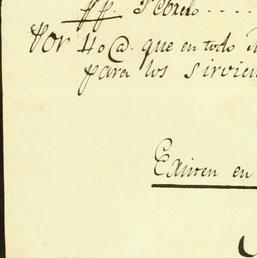 pp. Febrero . . . .
Por 40 @. que en todo
para los sirvien
Existen en